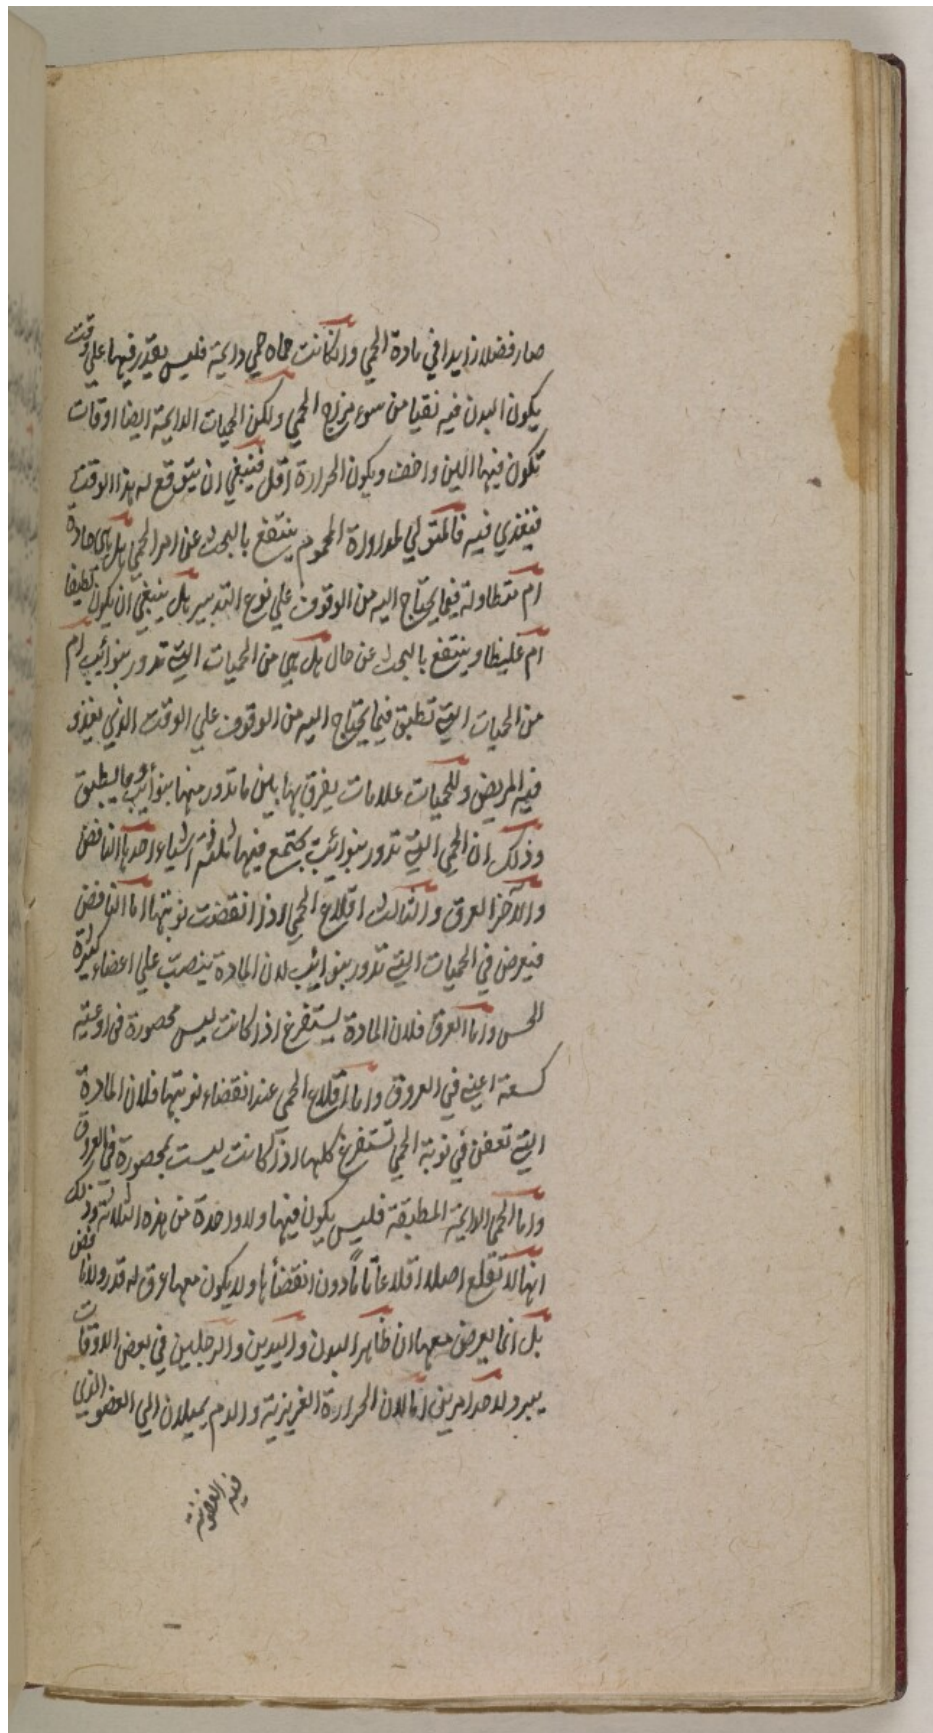 صار فضلا زايدا في مادة الحمي وان كانت حماه حمي دايمة فليس يقدر فيها علي وقت
يكون البدن فيه نقيا من سوء مزاج الحمي ولكن الحميات الدايمة ايضا اوقات
تكون فيها الين واخف ويكون الحرارة اقل فينبغي ان يتوقع له هذا الوقت
فيغذي فيه فالمتولي لمداواة المحموم ينتفع بالبحث عن امر الحمي هل هي حادة
ام متطاولة فيما يحتاج اليه من الوقوف علي نوع التدبير هل ينبغي ان يكون لطيفا
ام غليظا وينتفع بالبحث عن حال هل هي من الحميات التي تدور بنوائب ام
من الحميات التي تطبق فيما يحتاج اليه من الوقوف علي الوقت الذي يغذو
فيه المريض وللحميات علامات يفرق بها بين ما تدور منها بنوائب وما يطبق
وذلك ان الحمي التي تدور بنوائب يجتمع فيها ثلثة اشياء احدها النافض
والآخر العرق والثالث اقلاع الحمي اذا انقضت نوبتها اما النافض
فيعرض في الحميات التي تدور بنوائب لان المادة ينصب علي اعضاء كثيرة
الحس واما العرق فلان المادة يستفرغ اذا كانت ليس محصورة في اوعية
كسعة اعني في العروق واما اقلاع الحمي عند انقضاء نوبتها فلان المادة
التي تعفن في نوبة الحمي تستفرغ كلها اذا كانت ليست بمحصورة في العروق
واما الحمي الدايمة المطبقة فليس يكون فيها ولا واحدة من هذه الثلاثة وذلك
انها لا تقلع اصلا اقلاعا تاما دون انقضائها ولا يكون معها عرق له قدر ولا نافض
بل انما يعرض معها ان ظاهر البدن واليدين والرجلين في بعض الاوقات
يبرد لاحد امرين اما لان الحرارة الغريزية والدم يميلان الي العضو الذي
فيه العفونة